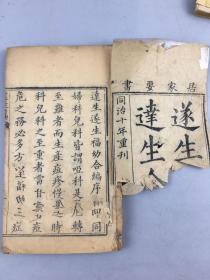 居家要書
遂生
達生
同治十年重刊
達生遂生福幼合編序
婦科兒科皆謂啞科是
至難者而生產痘疹慢驚
科兒科之至重者當
危之務必多方 三症